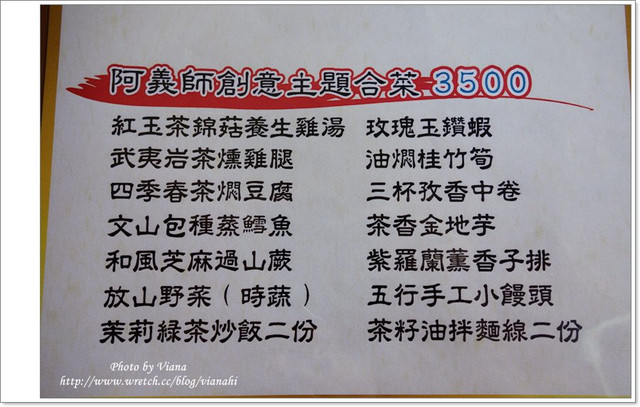 阿義師創意主題合菜 3500
紅玉茶錦菇養生雞湯 玫瑰玉鑽蝦
武夷岩茶燻雞腿 油燜桂竹筍
四季春茶燜豆腐 三杯孜香中卷
文山包種蒸鱈魚 茶香金地芋
和風芝麻過山蕨 紫羅蘭薰香子排
放山野菜（時蔬） 五行手工小饅頭
茉莉綠茶炒飯二份 茶籽油拌麵線二份
Photo by Viana
http://www.wretch.cc/blog/vianahi